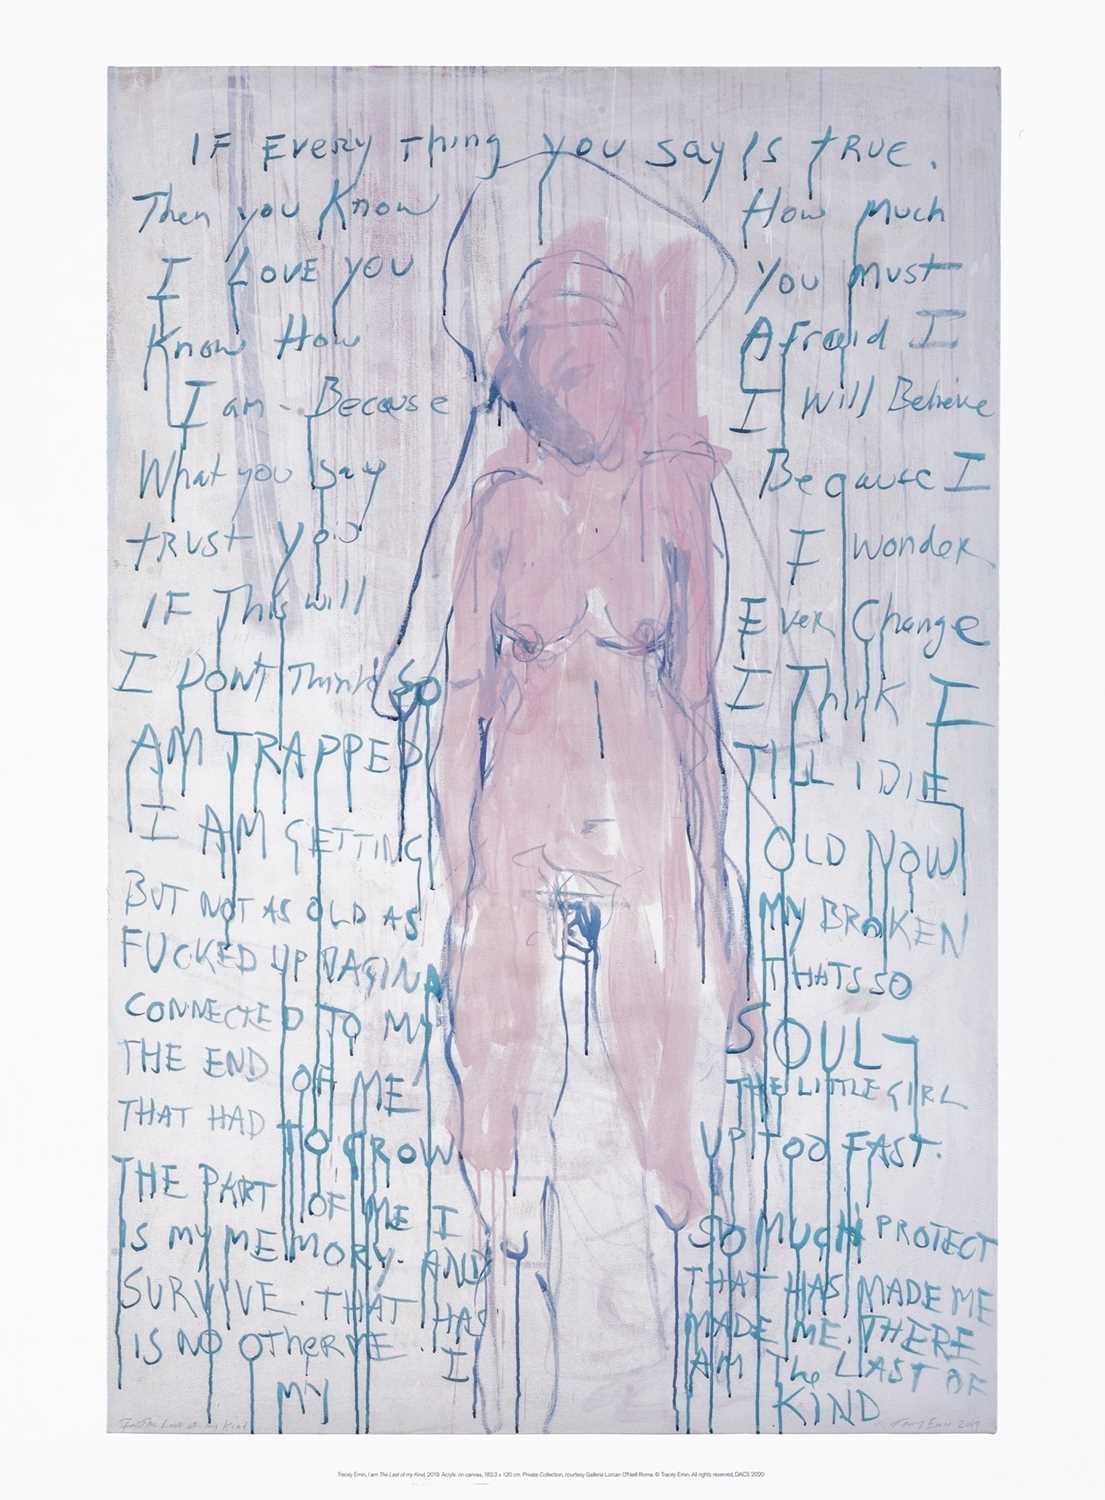 IF Every Thing you say Is TRUE.
Then you Know How Much
I LOVE YOU You Must
Know How Afraid I
I am - Because I Will Believe
What you say Because I
TRUST you I Wonder
IF This will Ever Change
I DON'T Think So I Think I
AM TRAPPED TILL I DIE
I AM GETTING OLD NOW
BUT NOT AS OLD AS MY BROKEN
FUCKED UP VAGINA THATS SO
CONNECTED TO MY SOUL
THE END OF ME THE LITTLE GIRL
THAT HAD TO GROW UP TOO FAST.
THE PART OF ME I SO MUCH PROTECT
IS MY MEMORY. AND THAT HAS MADE ME
SURVIVE. THAT HAS MADE ME. THERE
IS NO OTHER ME. I AM The LAST OF
MY KIND
I am The Last of my Kind Tracey Emin 2019
Tracey Emin, I am The Last of my Kind, 2019. Acrylic on canvas, 182.3 x 120 cm. Private Collection, courtesy Galleria Lorcan O'Neill Roma. © Tracey Emin. All rights reserved, DACS 2020